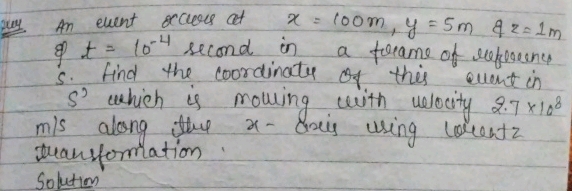 Ques An event occurs at x = 100m, y = 5m & z = 1m
& t = 10⁻⁴ second in a frame of reference
S. find the coordinates of this event in
S' which is moving with velocity 2.7 × 10⁸
m/s along the x - axis using lorentz
transformation.
Solution